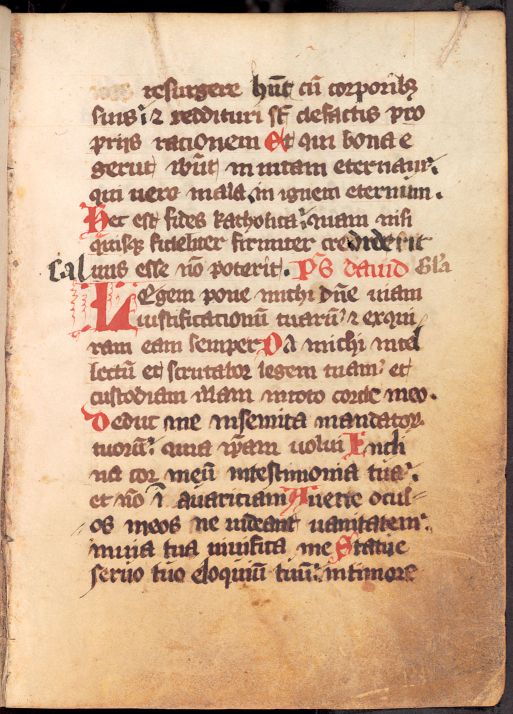 resurgere hn̄t cū corporibꝫ
suis: ⁊ reddituri st̄ de factis pro
priis rationem Et qui bona e
gerūt ibūt in uitam eternam:
qui uero mala, in ignem eternum.
Hec est fides katholica: quam nisi
quisqꝫ fideliter firmiter crediderit
saluus esse nō poterit. Ps dauid Gla
Legem pone michi dn̄e uiam
iustificationū tuarū: ⁊ exqui
ram eam semper Da michi intel
lectū et scrutabor legem tuam: et
custodiam illam in toto corde meo.
Deduc me in semita mandator
tuorū: quia ip̄am uolui Incli
na cor meū in testimonia tua:
et nō ī auariciam Auerte ocul
os meos ne uideant uanitatem:
in uia tua uiuifica me Statue
seruo tuo eloquiū tuū: in timore